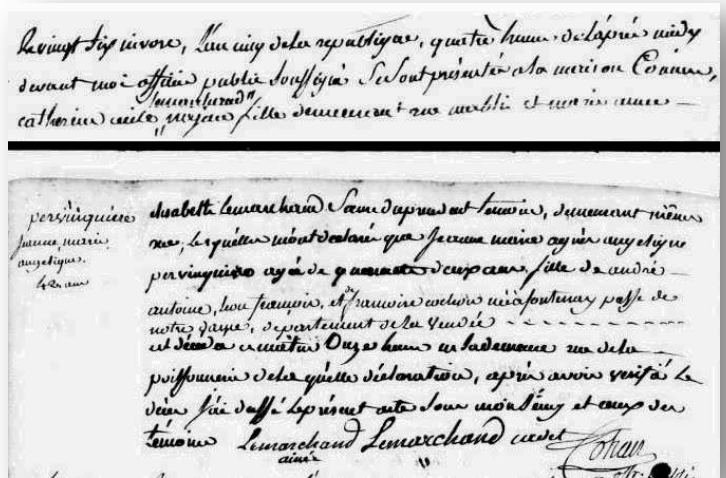 Le vingt six nivose, l'an cinq de la republique, quatre heure de l'après midy
devant moi officié public soussigné se sont présenté a la maison Commune,
lemarchand
catherine cecile majeure fille demeurant rue mably et marie anne
pervinquiere
jeanne marie
angelique
42 ans
elisabeth Lemarchand Sœur du president temoin, demeurant même
rue, lesquelle m'ont déclaré que Jeanne marie agnès angelique
pervinquiere agée de quarante deux ans, fille de andré
antoine, et de françoise née a fontenay psse de
notre dame, département de la Vendée
est décédé ce mattin Onze heure en sa demeure rue de la
poissonnerie de la quelle déclaration, après avoir verifié le
décès j'ai dressé le présent acte sous mon seing et ceux des
témoins Lemarchand Lemarchand cadet
ainée